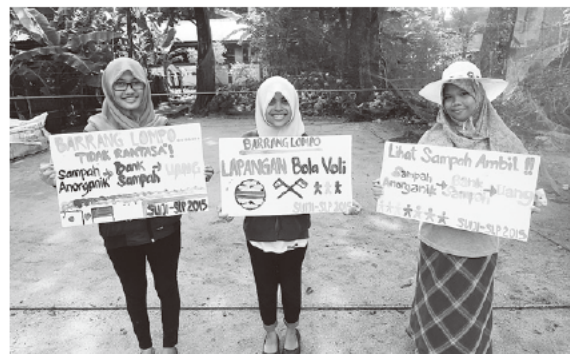 BARRANG LOMPO
TIDAK RANTASA'!!
Sampah → Bank → Uang
Anorganik Sampah
SUIJI-SLP 2015
BARRANG LOMPO
LAPANGAN Bola Voli
SUIJI-SLP 2015
Lihat Sampah Ambil !!
Sampah → Bank → Uang
Anorganik Sampah
SUIJI-SLP 2015